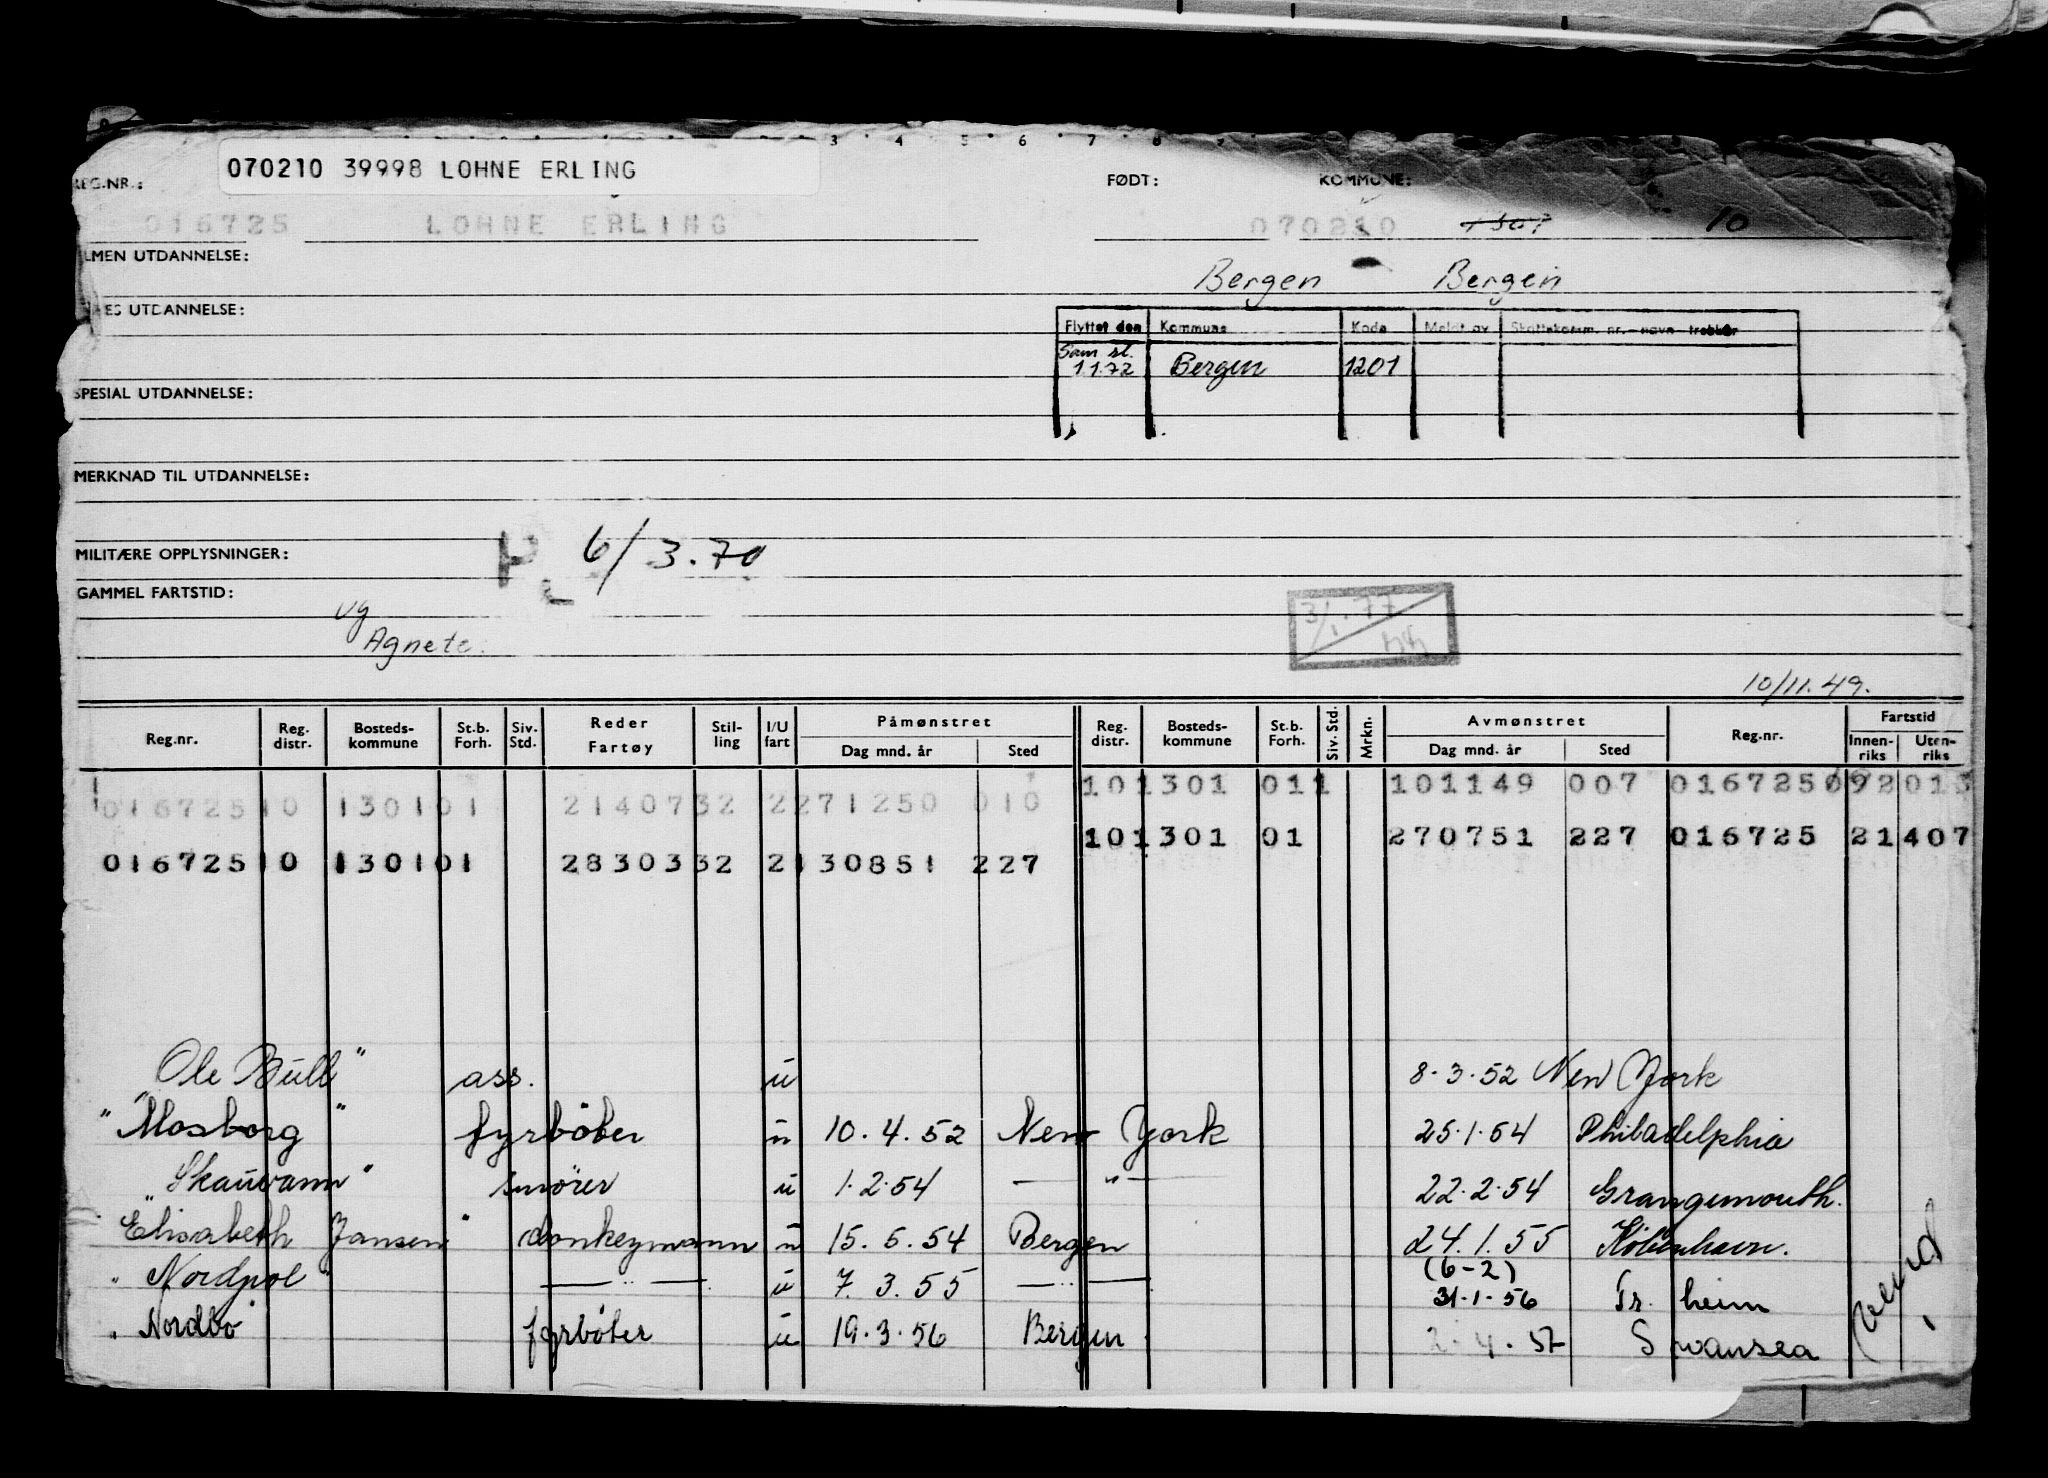 3 4 5 6 7 8 9
070210 39998 LOHNE ERLING
REG.NR.: FØDT: KOMMUNE:
016725 LOHNE ERLING 070210 10
LMEN UTDANNELSE:
Bergen Bergen
ES UTDANNELSE:
Flyttet den Kommune Kode Meldt av Skattekomm. nr. - navn - trekkår
Sam st.
1.1.72 Bergen 1201
SPESIAL UTDANNELSE:
MERKNAD TIL UTDANNELSE:
MILITÆRE OPPLYSNINGER: 6/3.70
GAMMEL FARTSTID:
vg
Agnete.
3/1.77
10/11.49.
Reg.nr. Reg. distr. Bosteds-kommune St.b. Forh. Siv. Std. Reder Fartøy Stil-ling I/U fart Påmønstret Dag mnd. år Sted Reg. distr. Bosteds-kommune St.b. Forh. Siv. Std. Mrkn. Avmønstret Dag mnd. år Sted Reg.nr. Fartstid Innen-riks Uten-riks
101301 011 101149 007 0167250 92013
01672510 130101 2140732 2271250 010
101301 01 270751 227 016725 21407
01672510 130101 2830332 2130851 227
Ole Bull" ass. u 8.3.52 New York
"Mosborg" fyrbøter u 10.4.52 New York 25.1.54 Philadelphia
"Skauvann" smører u 1.2.54 — " — 22.2.54 Grangemouth.
Elisabeth Jansen" donkeymann u 15.5.54 Bergen 24.1.55 København.
(6-2)
"Nordpol" — " — u 7.3.55 — " — 31.1.56 Tr. heim
"Nordbø fyrbøter u 19.3.56 Bergen 2.4.57 Swansea
vend